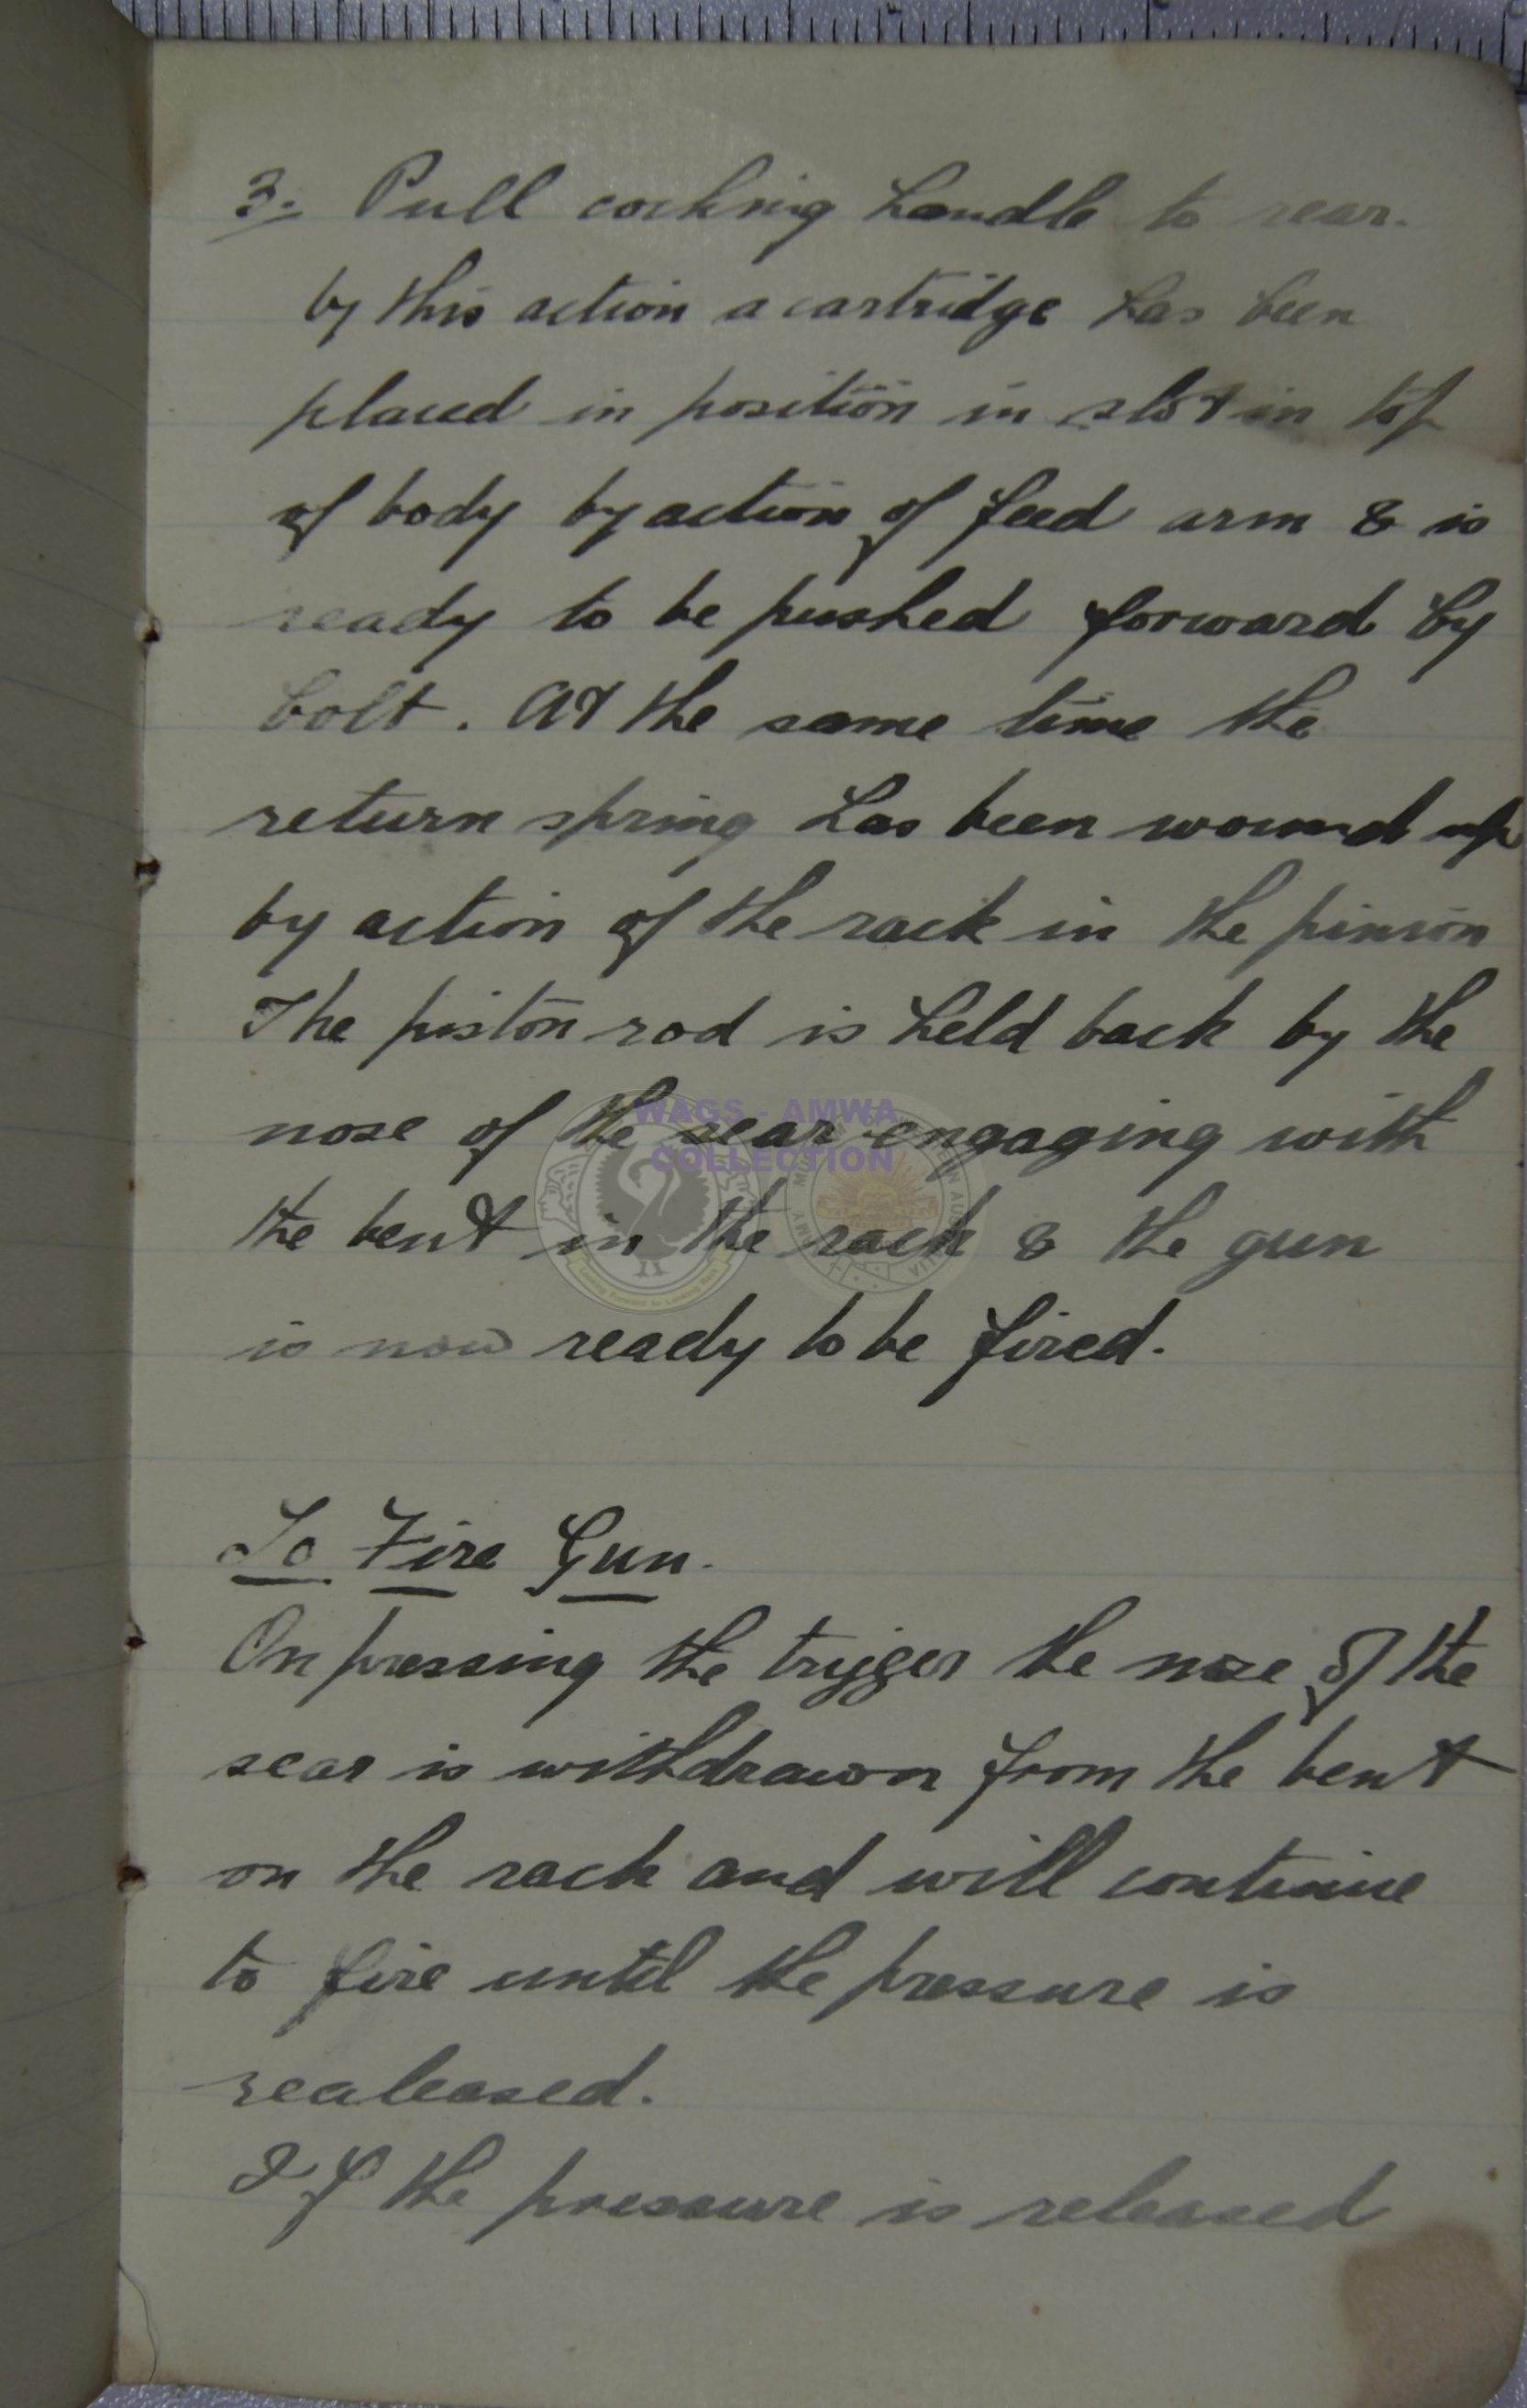 3. Pull cocking handle to rear.
by this action a cartridge has been
placed in position in slot in top
of body by action of feed arm & is
ready to be pushed forward by
bolt. At the same time the
return spring has been wound up
by action of the rack in the pinion
The piston rod is held back by the
nose of the sear engaging with
the bent in the rack & the gun
is now ready to be fired.
To Fire Gun.
On pressing the trigger the nose of the
sear is withdrawn from the bent
on the rack and will continue
to fire until the pressure is
realeased.
If the pressure is released
WAGS - AMWA
COLLECTION